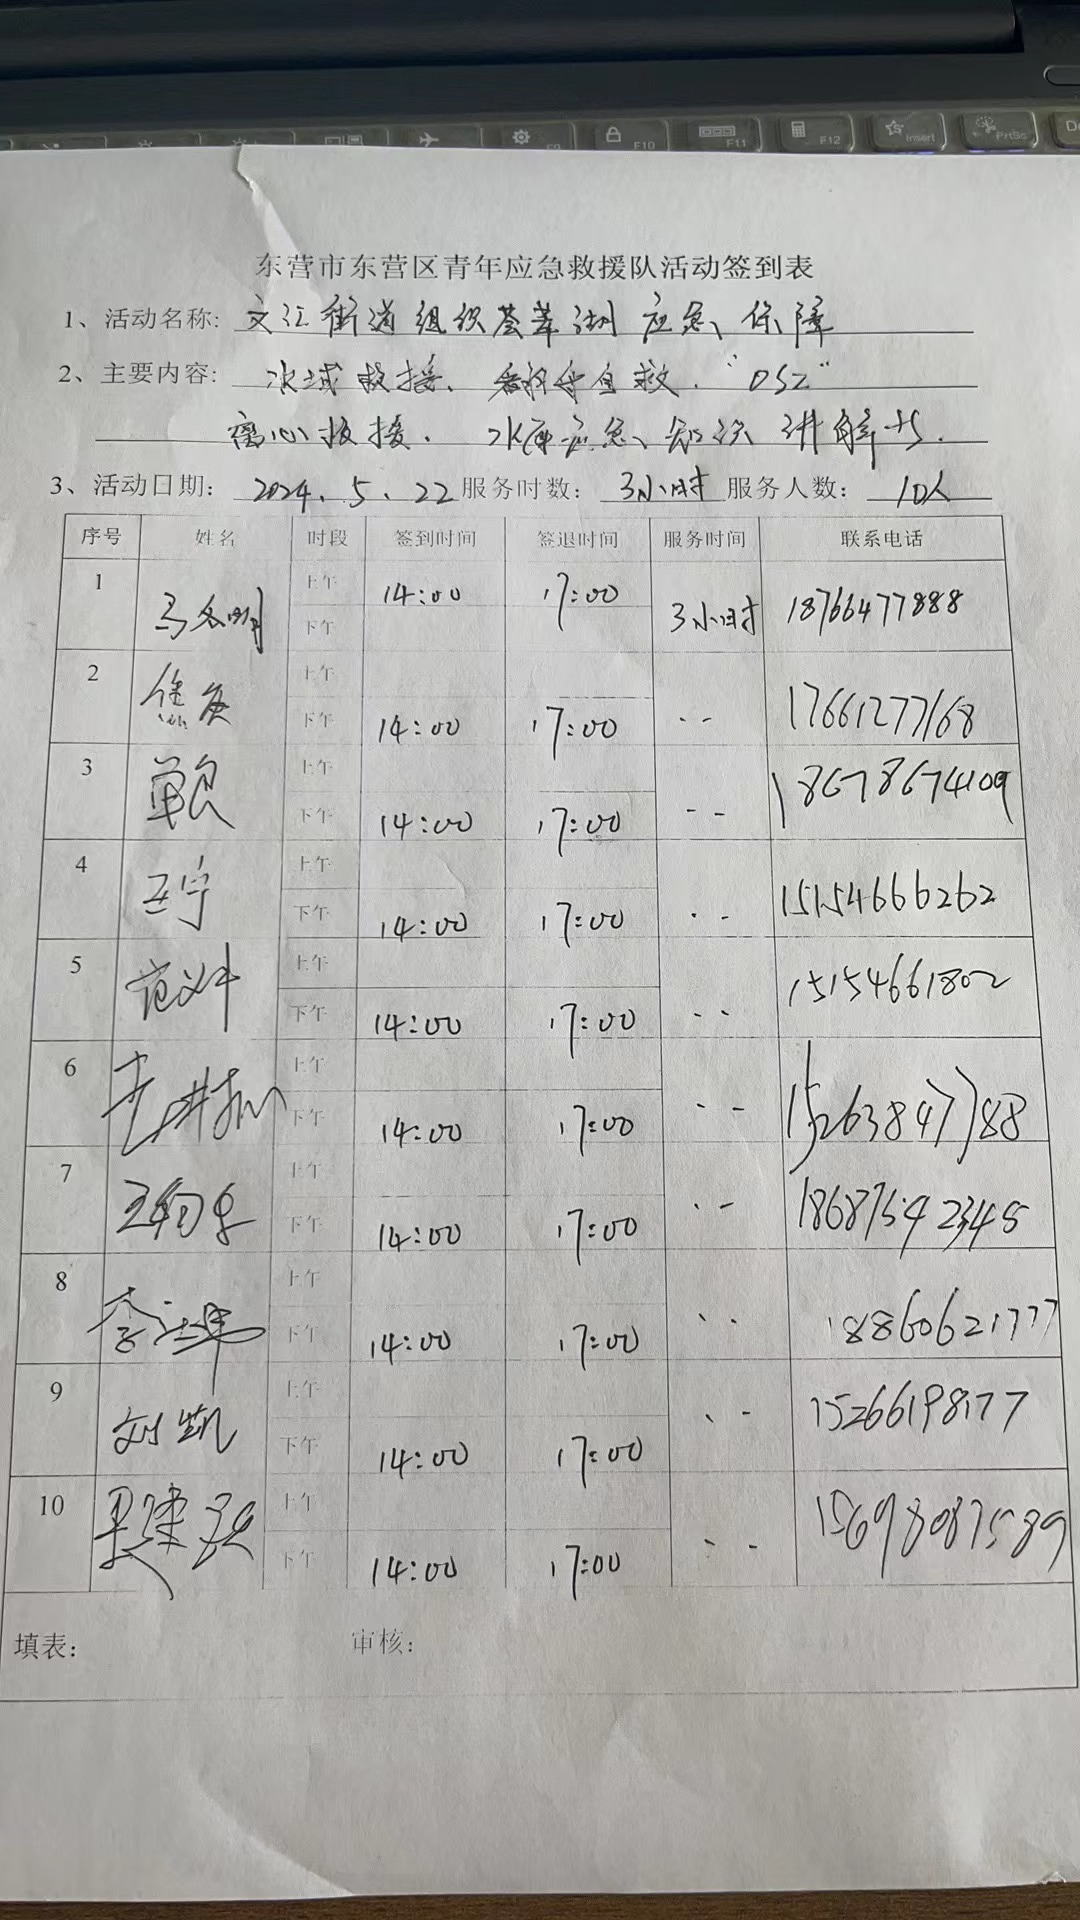 F9 F10 F11 F12 Insert PrtSc
东营市东营区青年应急救援队活动签到表
1、活动名称: 文汇街道组织荟萃湖应急保障
2、主要内容: 水域救援、自救."052"
离心救援. 水库应急知识讲解等.
3、活动日期: 2024.5.22 服务时数: 3小时 服务人数: 10人
序号 姓名 时段 签到时间 签退时间 服务时间 联系电话
1 上午 14:00 17:00 3小时 18766477888
下午
2 上午
下午 14:00 17:00 17661277168
3 上午
下午 14:00 17:00 18678674109
4 王宁 上午
下午 14:00 17:00 15154666262
5 上午
下午 14:00 17:00 15154661802
6 上午
下午 14:00 17:00 15263847788
7 上午
下午 14:00 17:00
8 上午
下午 14:00 17:00 18860621777
9 刘凯 上午
下午 14:00 17:00 15266198177
10 上午
下午 14:00 17:00 15698087589
填表: 审核: